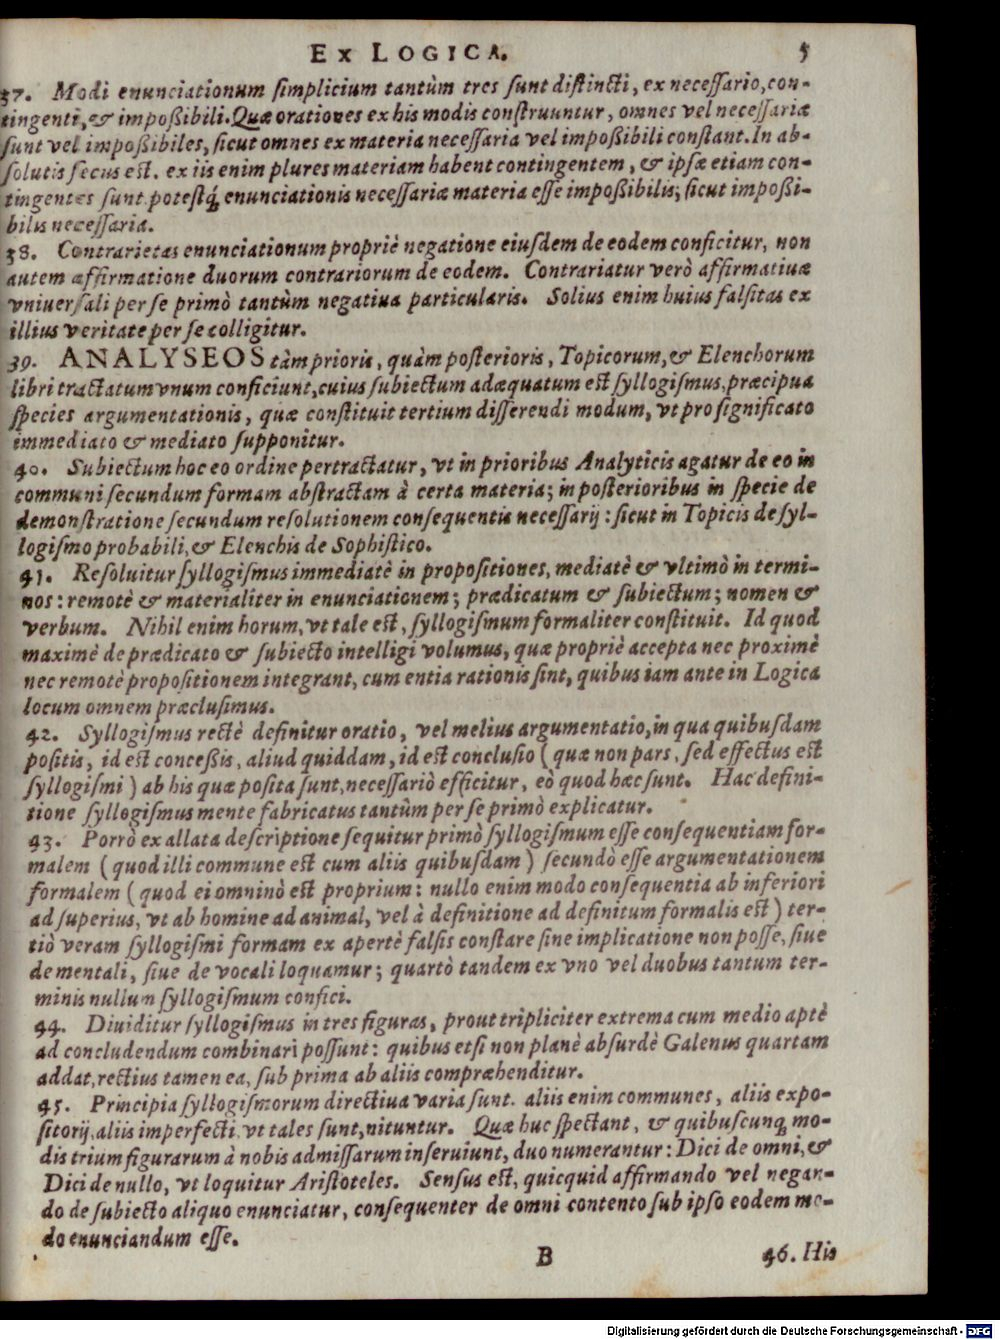 EX LOGICA. 5
37. Modi enunciationum ſimplicium tantùm tres ſunt diſtincti, ex neceſſario, con-
tingenti, & impoßibili. Quæ orationes ex his modis conſtruuntur, omnes vel neceſſariæ
ſunt vel impoßibiles, ſicut omnes ex materia neceſſaria vel impoßibili conſtant. In ab-
ſolutis ſecus est. ex iis enim plures materiam habent contingentem, & ipſæ etiam con-
tingentes ſunt. potestq́; enunciationis neceſſariæ materia eſſe impoßibilis; ſicut impoßi-
bilis neceſſaria.
38. Contrarietas enunciationum propriè negatione eiuſdem de eodem conficitur, non
autem affirmatione duorum contrariorum de eodem. Contrariatur verò affirmatiuæ
vniuerſali per ſe primò tantùm negatiua particularis. Solius enim huius falſitas ex
illius veritate per ſe colligitur.
39. ANALYSEOS tàm prioris, quàm poſterioris, Topicorum, & Elenchorum
libri tractatum vnum conficiunt, cuius ſubiectum adæquatum est ſyllogiſmus, præcipua
ſpecies argumentationis, quæ conſtituit tertium diſſerendi modum, vt pro ſignificato
immediato & mediato ſupponitur.
40. Subiectum hoc eo ordine pertractatur, vt in prioribus Analyticis agatur de eo in
communi ſecundum formam abſtractam à certa materia; in poſterioribus in ſpecie de
demonſtratione ſecundum reſolutionem conſequentis neceſſarij: ſicut in Topicis de ſyl-
logiſmo probabili, & Elenchis de Sophiſtico.
41. Reſoluitur ſyllogiſmus immediatè in propoſitiones, mediatè & vltimò in termi-
nos: remotè & materialiter in enunciationem; prædicatum & ſubiectum; nomen &
verbum. Nihil enim horum, vt tale est, ſyllogiſmum formaliter conſtituit. Id quod
maximè de prædicato & ſubiecto intelligi volumus, quæ propriè accepta nec proximè
nec remotè propoſitionem integrant, cum entia rationis ſint, quibus iam ante in Logica
locum omnem præcluſimus.
42. Syllogiſmus rectè definitur oratio, vel melius argumentatio, in qua quibuſdam
poſitis, id est conceßis, aliud quiddam, id est concluſio (quæ non pars, ſed effectus est
ſyllogiſmi) ab his quæ poſita ſunt, neceſſariò efficitur, eò quod hæc ſunt. Hac defini-
tione ſyllogiſmus mente fabricatus tantùm per ſe primò explicatur.
43. Porrò ex allata deſcriptione ſequitur primò ſyllogiſmum eſſe conſequentiam for-
malem (quod illi commune est cum aliis quibuſdam) ſecundò eſſe argumentationem
formalem (quod ei omninò est proprium: nullo enim modo conſequentia ab inferiori
ad ſuperius, vt ab homine ad animal, vel à definitione ad definitum formalis est) ter-
tiò veram ſyllogiſmi formam ex apertè falſis conſtare ſine implicatione non poſſe, ſiue
de mentali, ſiue de vocali loquamur; quartò tandem ex vno vel duobus tantum ter-
minis nullum ſyllogiſmum confici.
44. Diuiditur ſyllogiſmus in tres figuras, prout tripliciter extrema cum medio aptè
ad concludendum combinari poſſunt: quibus etſi non planè abſurdè Galenus quartam
addat, rectius tamen ea, ſub prima ab aliis compræhenditur.
45. Principia ſyllogiſmorum directiua varia ſunt. aliis enim communes, aliis expo-
ſitorij, aliis imperfecti, vt tales ſunt, nituntur. Quæ huc ſpectant, & quibuſcunq; mo-
dis trium figurarum à nobis admiſſarum inſeruiunt, duo numerantur: Dici de omni, &
Dici de nullo, vt loquitur Ariſtoteles. Senſus est, quicquid affirmando vel negan-
do de ſubiecto aliquo enunciatur, conſequenter de omni contento ſub ipſo eodem mo-
do enunciandum eſſe.
B 46. His
Digitalisierung gefördert durch die Deutsche Forschungsgemeinschaft - DFG